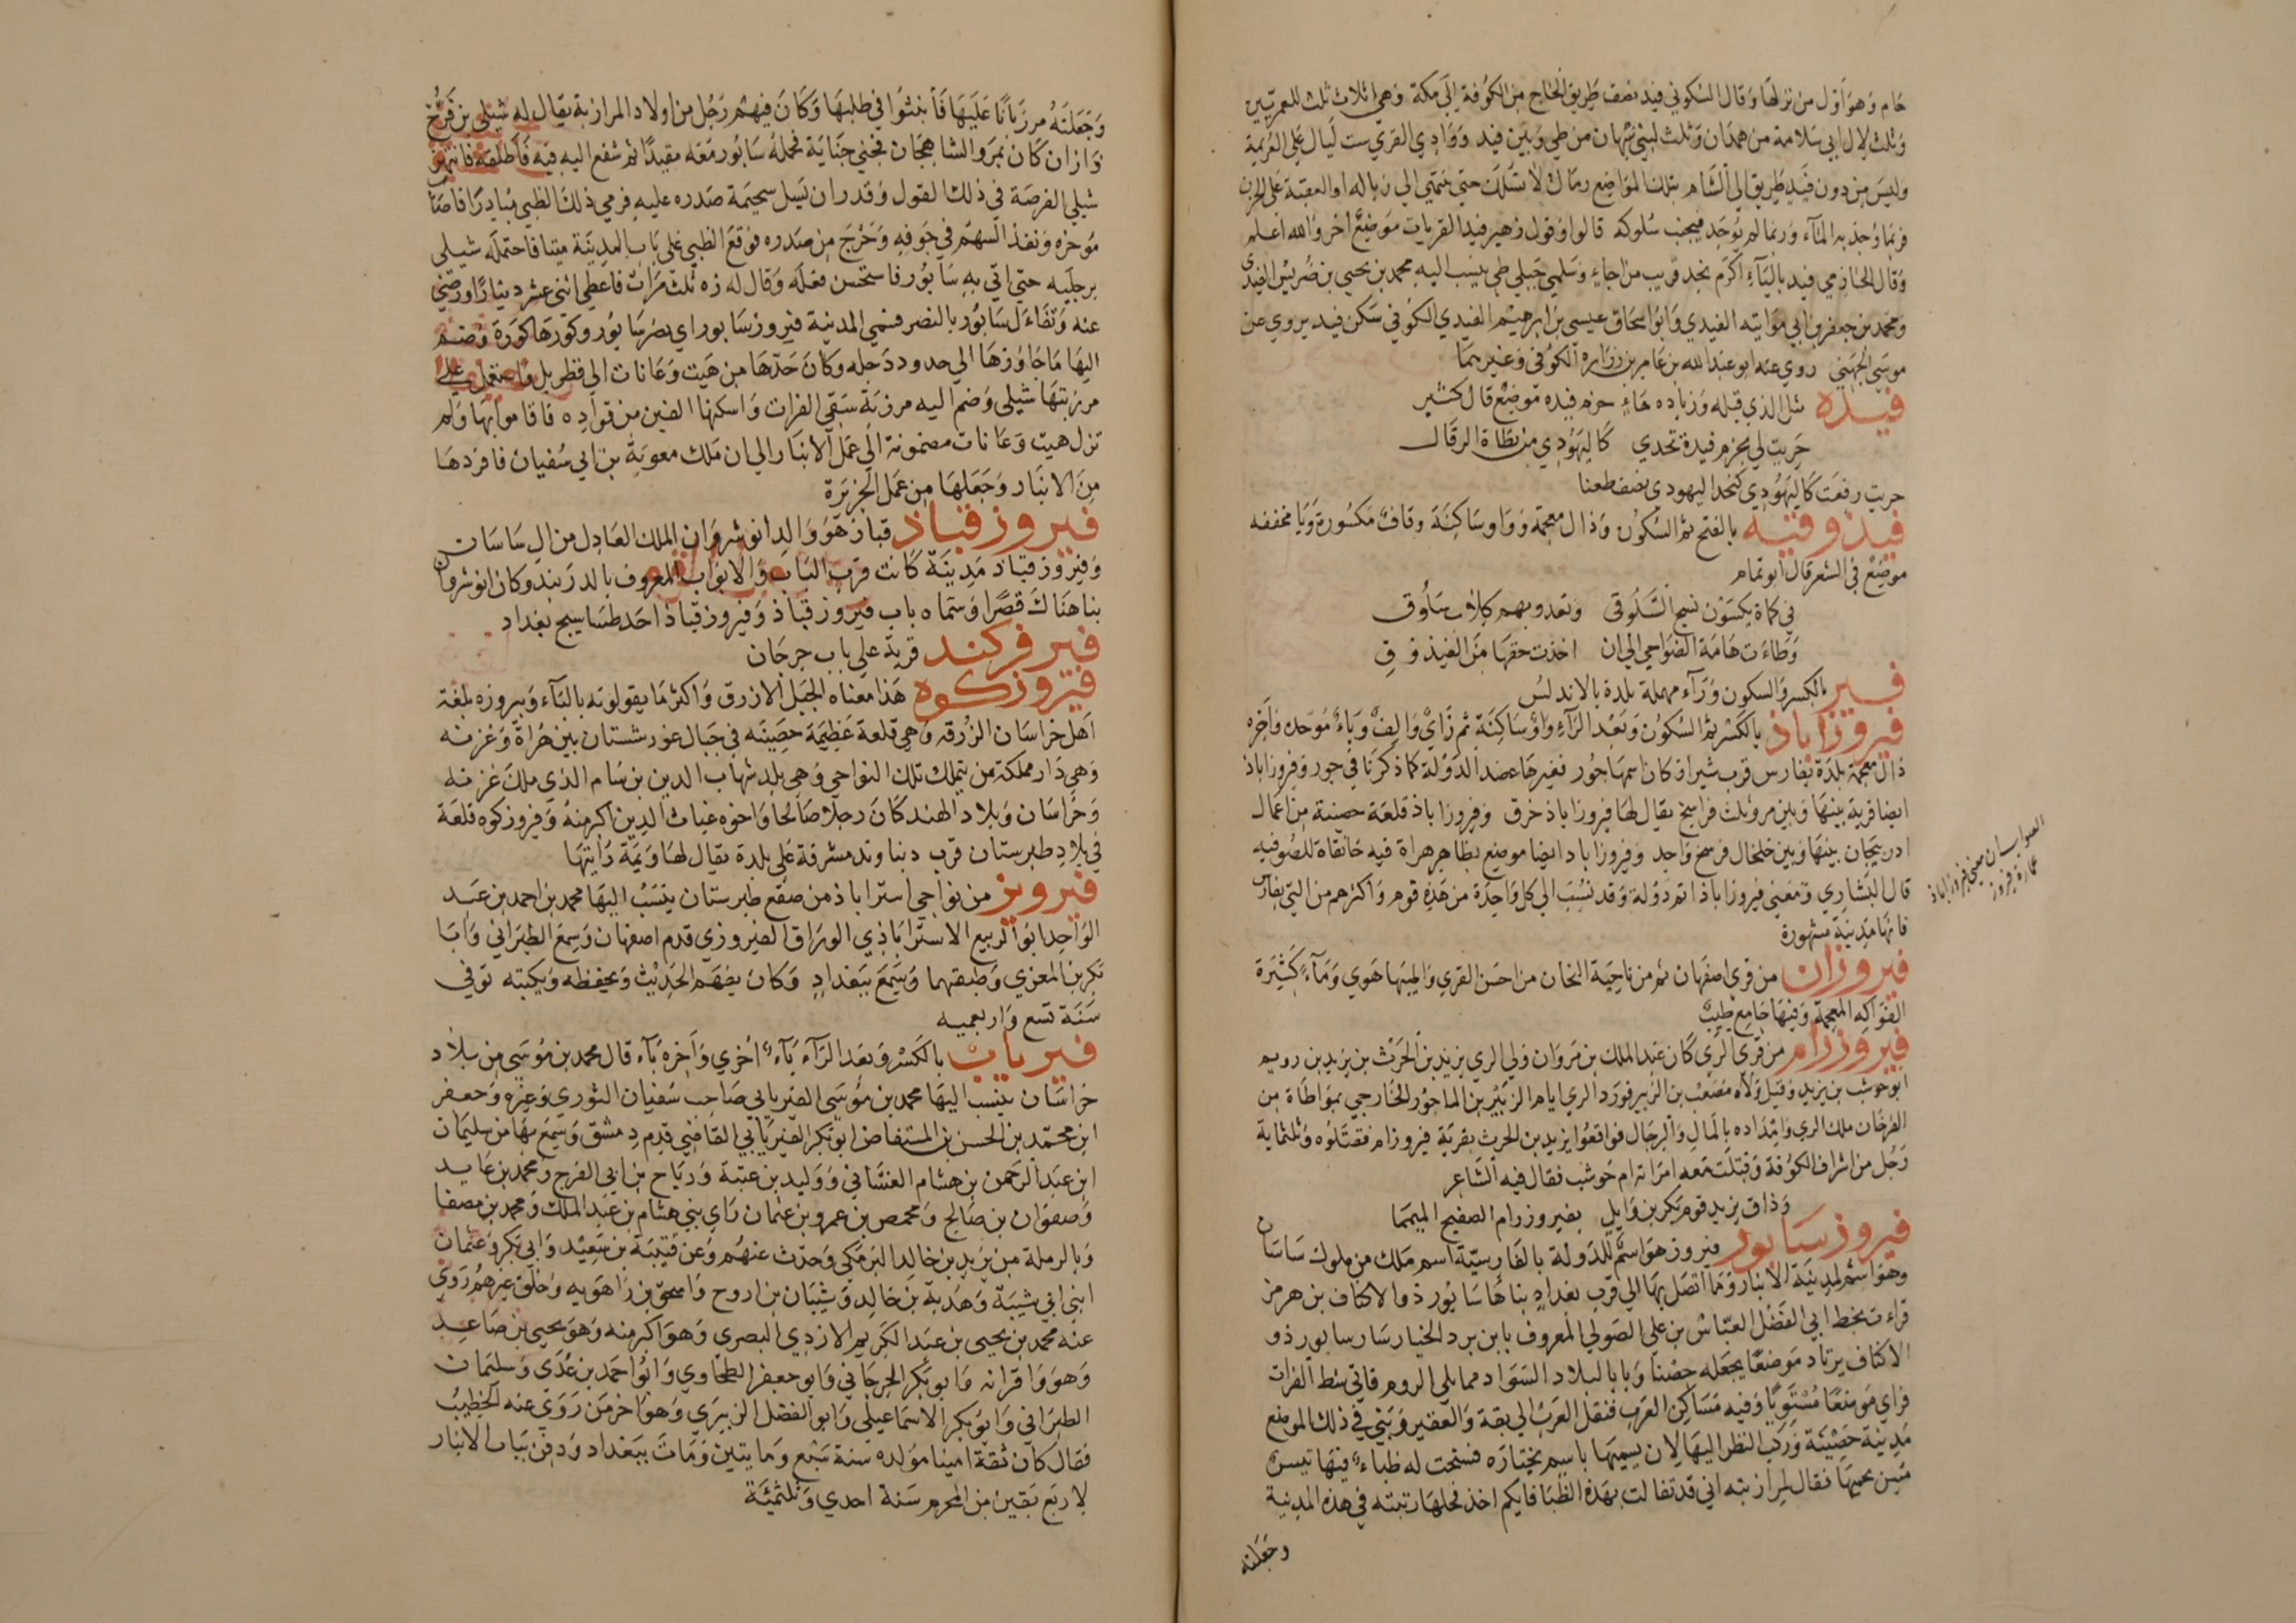 حام وهو اول من نزلها وقال السكوني فيد نصف طريق الحاج من الكوفة الى مكة وهي اثلاث ثلث للعمريين
وثلث لال ابي سلامة من همدان وثلث لبني نبهان من طي وبين فيد ووادي القري ست ليال علي العريمة
وليس من دون فيد طريق الي الشام بتلك المواضع رمال لا تسلك حتي تنتهي الي زباله او العقبة علي الحزن
فربما وجد به المآء وربما لم يوجد فيجنب سلوكه قالوا وقول زهير فيد القريات موضع اخر والله اعلم
وقال الحازمي فيد باليآء اكرم نجد قريب من اجاء وسلمي جبلي طي ينسب اليه محمد بن يحيي بن ضريس الفيدي
ومحمد بن جعفر بن ابي مواتيه الفيدي وابو اسحاق عيسي بن ابرهيم الفيدي الكوفي سكن فيد يروي عن
موسي الجهني روي عنه ابو عبد الله بن عامر بن زرارة الكوفي وغيرهما
فيدة مثل الذي قبله وزياده هاء حزم فيده موضع قال كثير
حزيت لي بحزم فيدة تحدي كاليهودي من نطاة الرقال
حزيت رفعت كاليهودي كنخل اليهودي يصف ظعنا
فيذوقية بالفتح ثم السكون وذال معجمة وواو ساكنة وقاف مكسورة ويا مخففه
موضع في الشعر قال ابو تمام
في كماة يكسون نسج السلوقي وتعدو بهم كلاب سلوق
وطاءت هامة الضواحي الي ان اخذت حقها من الفيذوق
فير بالكسر والسكون ورآء مهملة بلدة بالاندلس
فيروزاباذ بالكسر ثم السكون وبعد الرآء واو ساكنة ثم زاي والف وباء موحده واخره
ذال معجمة بلدة بفارس قرب شيراز كان اسمها جور فغيرها عضد الدولة كما ذكرنا في جور وفيروزاباذ
ايضا قرية بينها وبين مرو ثلث فراسخ يقال لها فيروزاباذ خرق وفيروزاباذ قلعة حصينة من اعمال
ادربيجان بينها وبين خلخال فرسخ واحد وفيروزاباد ايضا موضع بظاهر هراة فيه خانقاة للصوفيه
قال البشاري ومعني فيروزاباذ اتم دولة وقد نسب الي كل واحدة من هذه قوم واكثرهم من التي بفارس
فانها مدينة مشهورة
الصواب ان معني فيروزاباذ
عمارة فيروز
فيروزان من قري اصفهان ثم من ناحية النخان من احسن القري واطيبها هوي ومآء كثيرة
الفواكه المعجمة وفيها جامع طيب
فيروزرام من قري الري كان عبد الملك بن مروان ولي الري يزيد بن الحرث بن يزيد بن رويم
ابو حوشب بن يزيد وقيل ولاه مصعب بن الزبير فورد الري ايام الزبير بن الماحوز الخارجي بمواطاة من
الفرخان ملك الري وامداده بالمال والرجال فواقعوا يزيد بن الحرث بقرية فيروزام فقتلوه وثلثماية
رجل من اشراف الكوفة وقتلت معه امراته ام حوشب فقال فيه الشاعر
وذاق يزيد قوم بكر بن وايل بفيروزرام الصفيح المصمما
فيروزسابور فيروز هو اسم للدولة بالفارسية اسم ملك من ملوك ساسان
وهو اسم لمدينة الانبار وما اتصل بها الي قرب بغداد بناها سابور ذو الاكتاف بن هرمز
قراءت بخط ابي الفضل العباس بن علي الصولي المعروف بابن برد الخيار سار سابور ذو
الاكتاف يرتاد موضعا يجعله حصنا وبابا لبلاد السواد مما يلي الروم فاتي شط الفرات
فراي موضعا مستويا وفيه مساكن العرب فنقل العرب الي بقة والعقير وبني في ذلك الموضع
مدينة حصينة وركب النظر اليها لان يسميها باسم يختاره فسنحت له ظباء فيها تيس
مسن يحميها فقال لمرازبته اني قد تفالت بهذه الظبا فايكم اخذ فحلها رتبته في هذه المدينة
وجعلته
وجعلته مرزبانا عليها فانبثوا في طلبها وكان فيهم رجل من اولاد المرازبة يقال له شيلي بن فرخ
زازان كان بمرو الشاهجان فجني جناية فحمله سابور معه مقيدا ثم شفع اليه فيه فاطلقه فانتهز
شيلي الفرصة في ذلك القول وقدر ان يسل سخيمة صدره عليه فرمي ذلك الظبي مبادرا فاصاب
موخره ونفذ السهم في جوفه وخرج من صدره فوقع الظبي علي باب المدينة ميتا فاحتمله شيلي
برجليه حتي اتي به سابور فاستحسن فعله وقال له زه ثلث مرات فاعطي اثني عشر دينارا ورضي
عنه وتفاءل سابور بالنصر فسمي المدينة فيروزسابور اي نصر سابور وكورها كورة وضم
اليها ما جاوزها الي حدود دجله وكان حدها من هيت وعانات الي قطربل واستعمل علي
مرزبتها شيلي وضم اليه مرزبة سقي الفرات واسكنها الفين من قواده فاقاموا بها ولم
تزل هيت وعانات مضمومة الي عمل الانبار الي ان ملك معوية بن ابي سفيان فافردها
من الانبار وجعلها من عمل الجزيرة
فيروزقباذ قباذ هو والد انوشروان الملك العادل من ال ساسان
وفيروزقباذ مدينة كانت قرب الباب والابواب المعروف بالدربند وكان انوشروان
بنا هناك قصرا وسماه باب فيروز قباذ وفيروز قباذ احد طساسيج بغداد
فيرفركند قرية علي باب جرجان
فيروزكوه هذا معناه الجبل الازرق واكثر ما يقولونه بالبآء وبيروزه بلغة
اهل خراسان الزرقه وهي قلعة عظيمة حصينه في جبال غورشستان بين هراة وغزنه
وهي دار مملكة من يتملك تلك النواحي وهي بلد شهاب الدين بن سام الذي ملك غزنه
وخراسان وبلاد الهند كان رجلا صالحا واخوه غياث الدين اكبر منه وفيروزكوه قلعة
في بلاد طبرستان قرب دنباوند مشرفة علي بلدة يقال لها ويمة رايتها
فيرويز من نواحي استراباذ من صقع طبرستان ينسب اليها محمد بن احمد بن عبد
الواحد ابو الربيع الاستراباذي الوراق الفيروزي قدم اصفهان وسمع الطبراني وابا
بكر بن المعزي وطبقتهما وسمع ببغداد وكان يفهم الحديث ويحفظه ويكتبه توفي
سنة تسع واربعميه
فيرياب بالكسر وبعد الرآء يآء اخري واخره بآء قال محمد بن موسي من بلاد
خراسان ينسب اليها محمد بن موسي الفيريابي صاحب سفيان الثوري وغيره وجعفر
ابن محمد بن الحسن بن المستفاض ابو بكر الفيريابي القاضي قدم دمشق وسمع بها من سليمان
ابن عبد الرحمن بن هشام الغساني ووليد بن عتبة ورباح بن ابي الفرج ومحمد بن عايد
وصفوان بن صالح وبحمص بن عمرو بن عثمان راي بني هشام بن عبد الملك ومحمد بن مصفا
وبالرملة من يزيد بن خالد البرمكي وحدث عنهم وعن قتيبة بن سعيد وابي بكر وعثمان
ابني ابي شيبة وهدبة بن خالد وشيبان بن اروح واسحق بن راهويه وخلق غيرهم روي
عنه محمد بن يحيي بن عبد الكريم الازدي البصري وهو اكبر منه وهو يحيي بن صاعد
وهو واقرانه وابو بكر الجرجاني وابو جعفر الطحاوي وابو احمد بن عدي وسليمان
الطبراني وابو بكر الاسماعيلي وابو الفضل الزبيري وهو اخر من روي عنه الخطيب
فقال كان ثقة امينا مولده سنة سبع ومايتين ومات ببغداد ودفن بباب الانبار
لاربع بقين من المحرم سنة احدي وثلثمئة